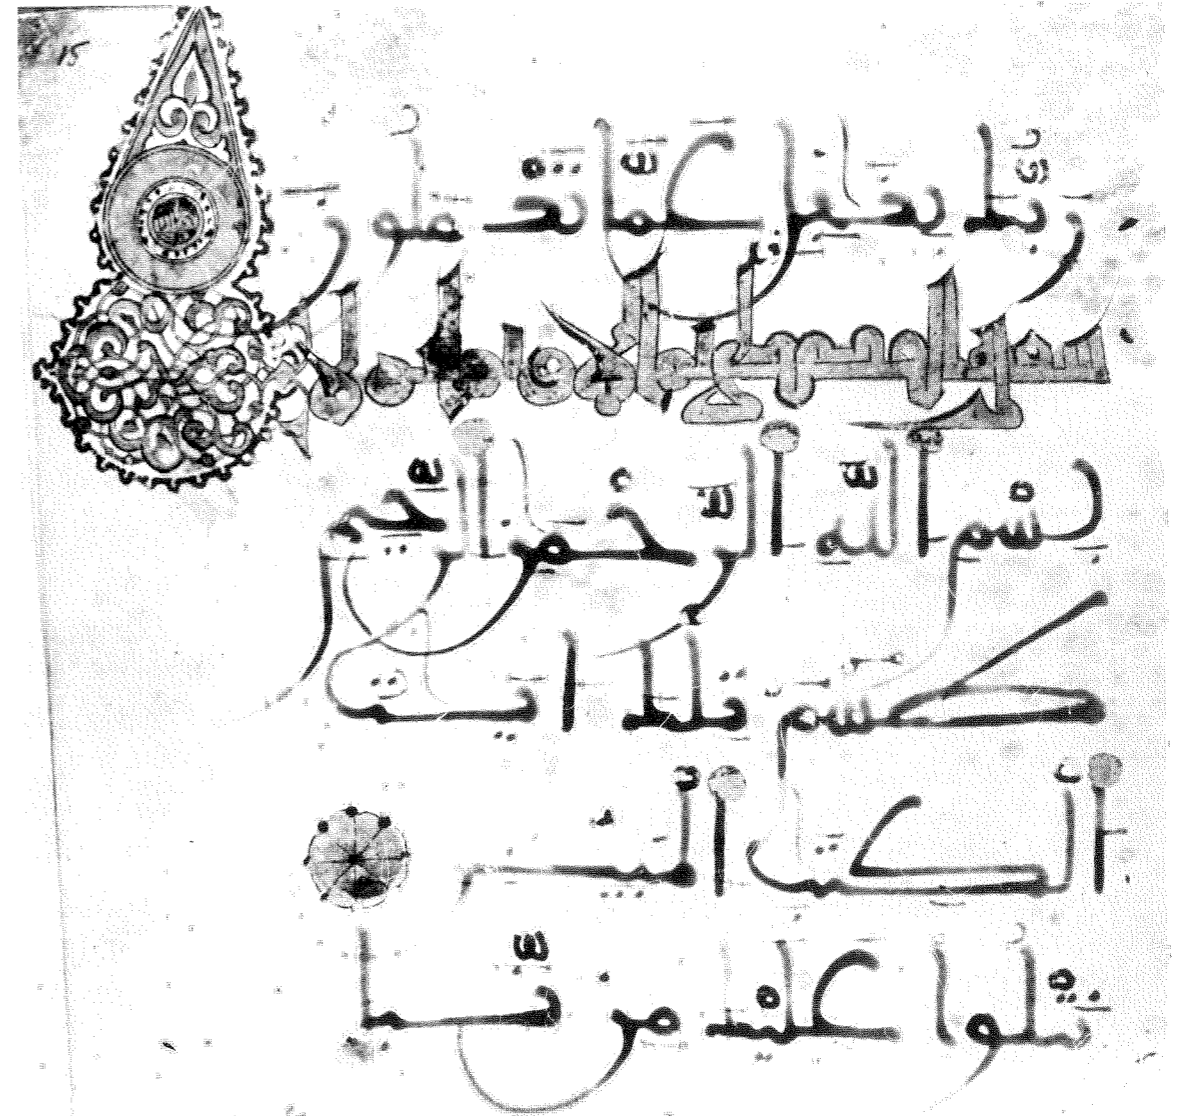 15
رَبُّكَ بِغَٰفِلٍ عَمَّا تَعْمَلُونَ
سورة القصص
بِسْمِ ٱللَّهِ ٱلرَّحْمَٰنِ ٱلرَّحِيمِ
طسٓمٓ تِلْكَ ءَايَٰتُ
ٱلْكِتَٰبِ ٱلْمُبِينِ
نَتْلُوا۟ عَلَيْكَ مِن نَّبَإِ